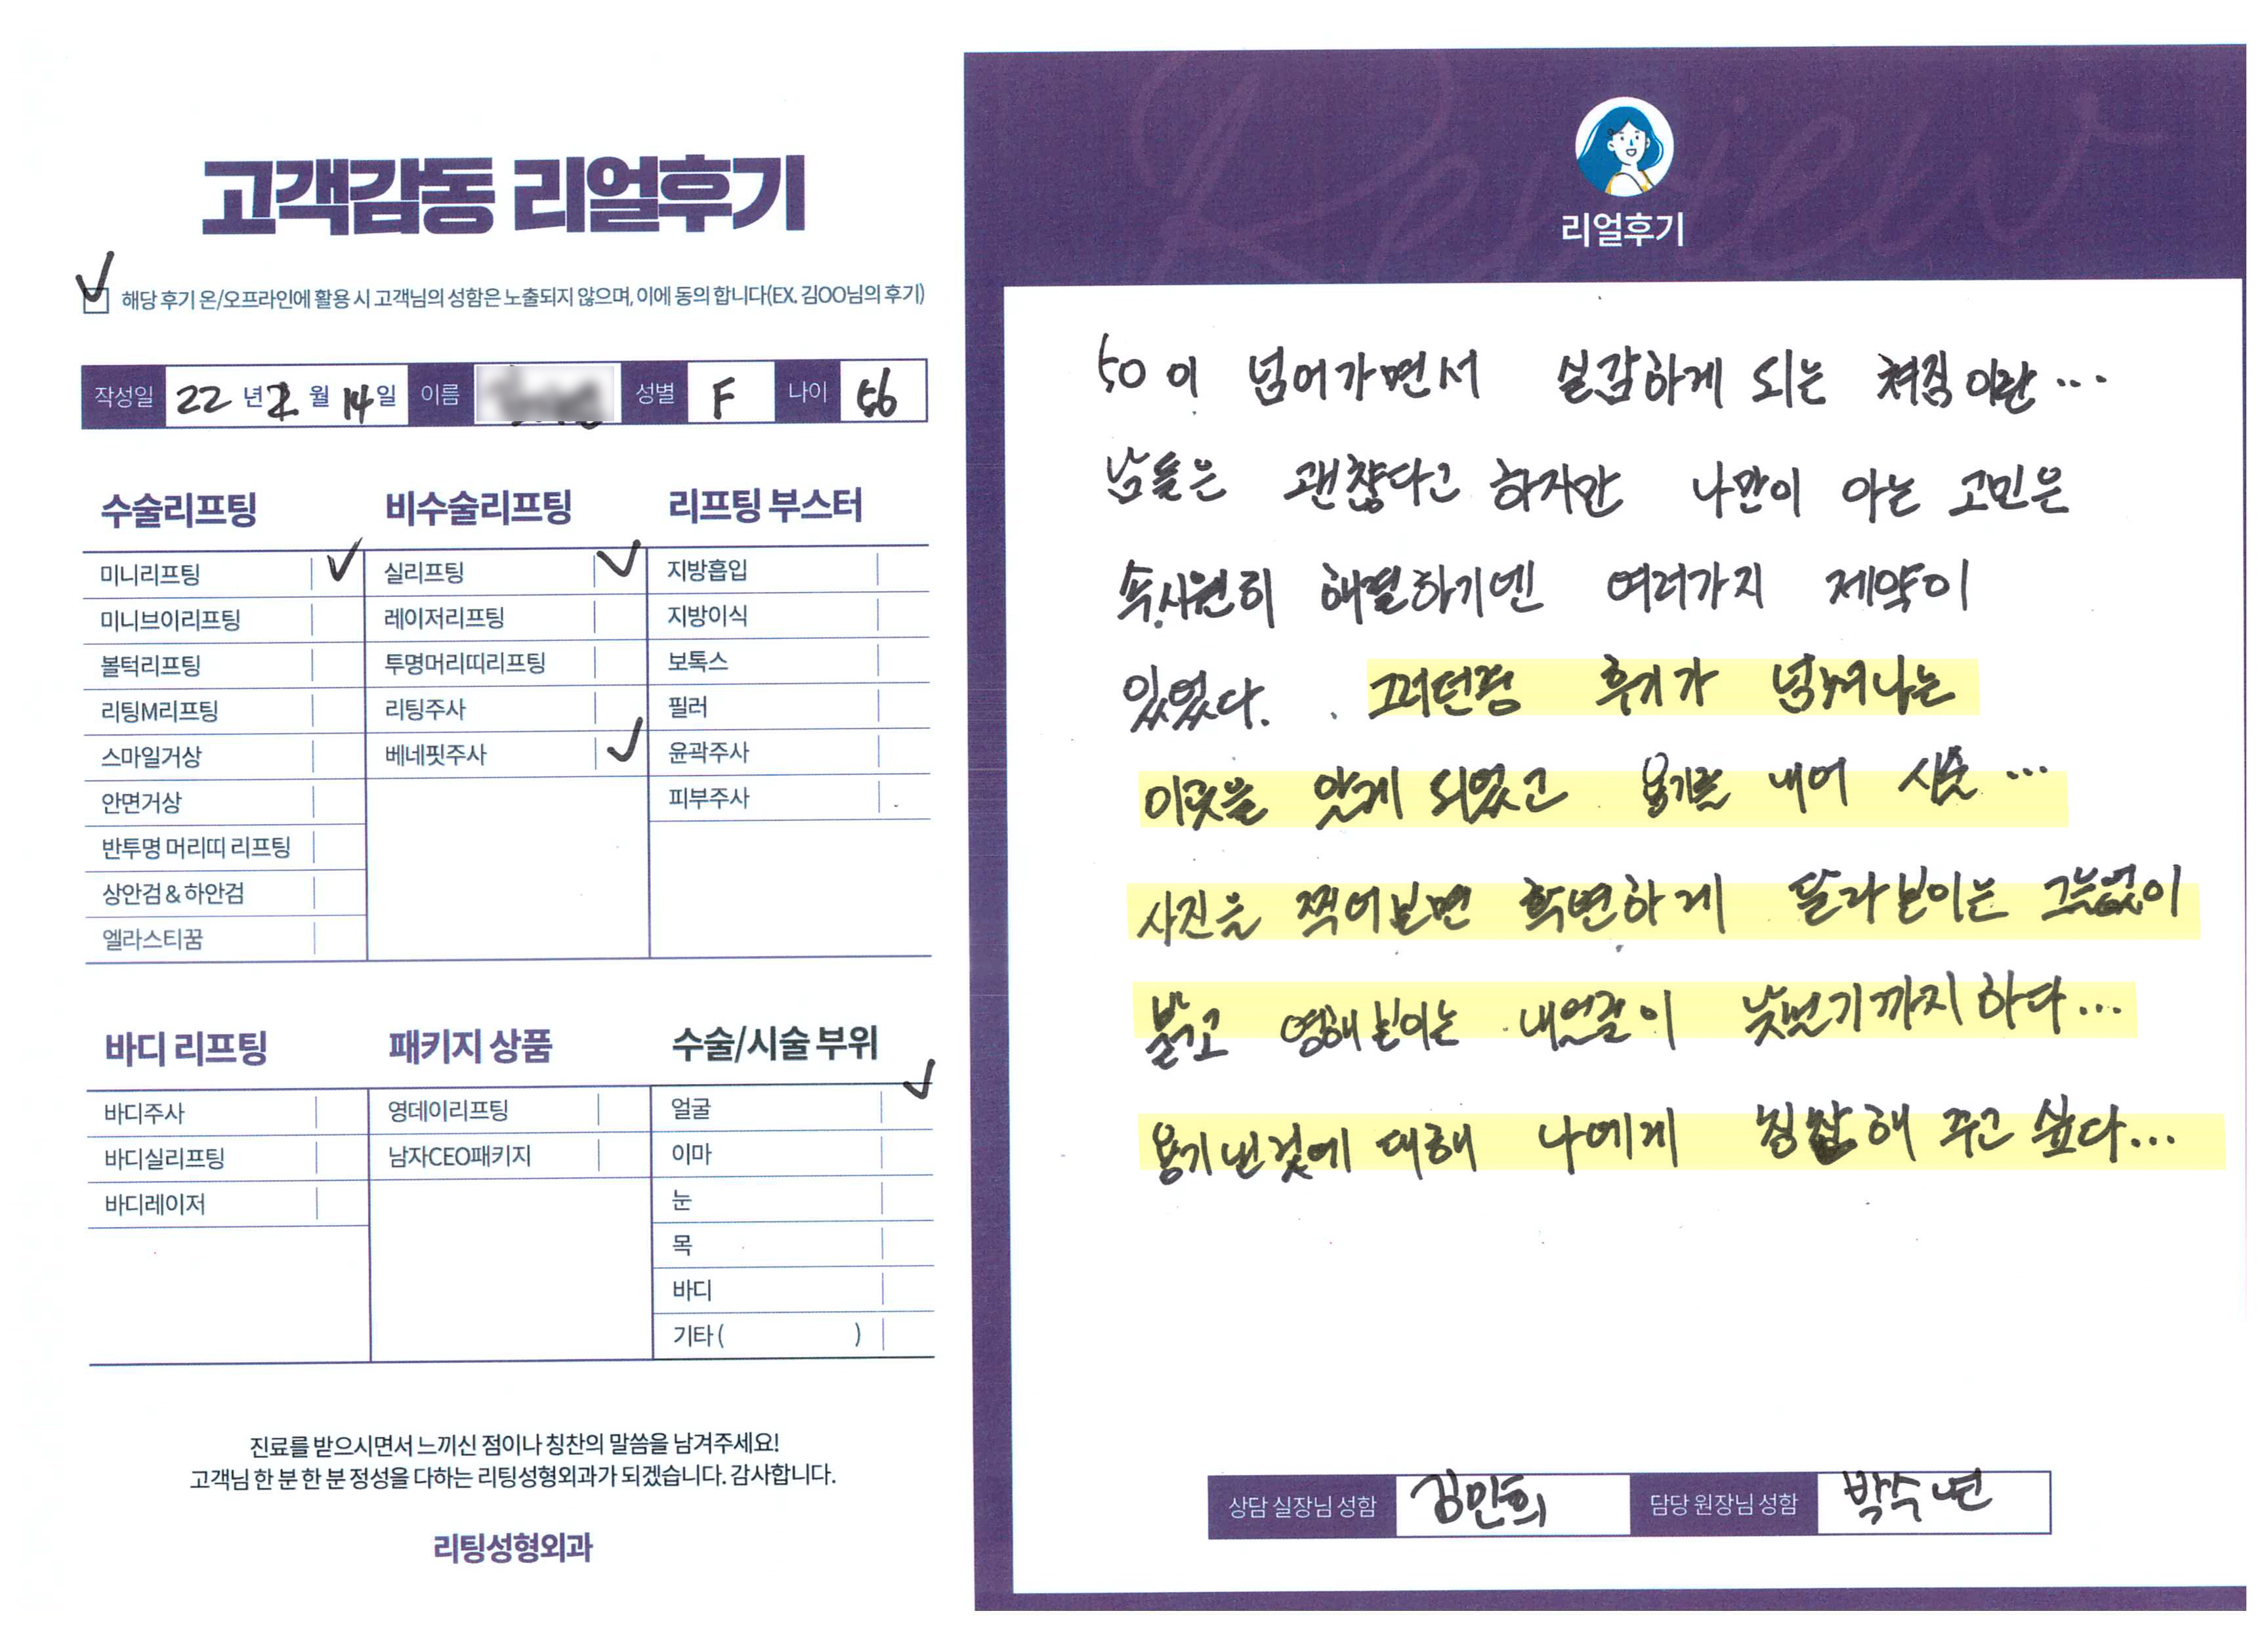 고객감동 리얼후기
해당 후기 온/오프라인에 활용 시 고객님의 성함은 노출되지 않으며, 이에 동의 합니다(EX. 김OO님의 후기)
작성일 22 년 2 월 14 일 이름 성별 F 나이 56
수술리프팅
미니리프팅
미니브이리프팅
볼턱리프팅
리팅M리프팅
스마일거상
안면거상
반투명 머리띠 리프팅
상안검 & 하안검
엘라스티꿈
비수술리프팅
실리프팅
레이저리프팅
투명머리띠리프팅
리팅주사
베네핏주사
리프팅 부스터
지방흡입
지방이식
보톡스
필러
윤곽주사
피부주사
바디 리프팅
바디주사
바디실리프팅
바디레이저
패키지 상품
영데이리프팅
남자CEO패키지
수술/시술 부위
얼굴
이마
눈
목
바디
기타 ( )
진료를 받으시면서 느끼신 점이나 칭찬의 말씀을 남겨주세요!
고객님 한 분 한 분 정성을 다하는 리팅성형외과가 되겠습니다. 감사합니다.
리팅성형외과
Review
리얼후기
50이 넘어가면서 실감하게 되는 쳐짐이란...
남들은 괜찮다고 하지만 나만이 아는 고민은
속시원히 해결하기엔 여러가지 제약이
있었다. 그러던중 후기가 넘쳐나는
이곳을 알게 되었고 용기를 내어 시술...
사진을 찍어보면 확연하게 달라보이는 그늘없이
밝고 영해보이는 내얼굴이 낯설기까지하다...
용기낸것에 대해 나에게 칭찬해 주고 싶다...
상담 실장님 성함 김민희 담당 원장님 성함 박수